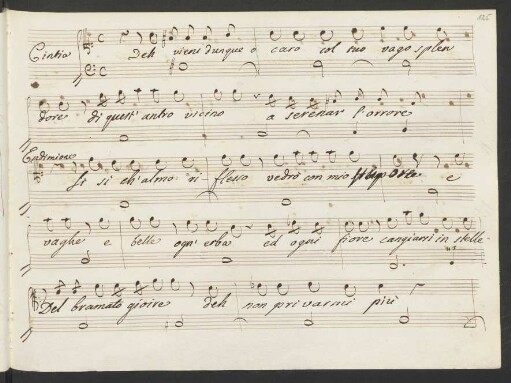 125
Cintia Deh vieni dunque o caro col tuo vago splen
dore di quest' antro vicino a serenar l'orrore
Endimione Si si ch' almo ri- flesso vedrò con mio stupore e
vaghe e belle ogn' erba ed ogni fiore cangiarsi in stelle
Del bramato gioire deh non privarmi più